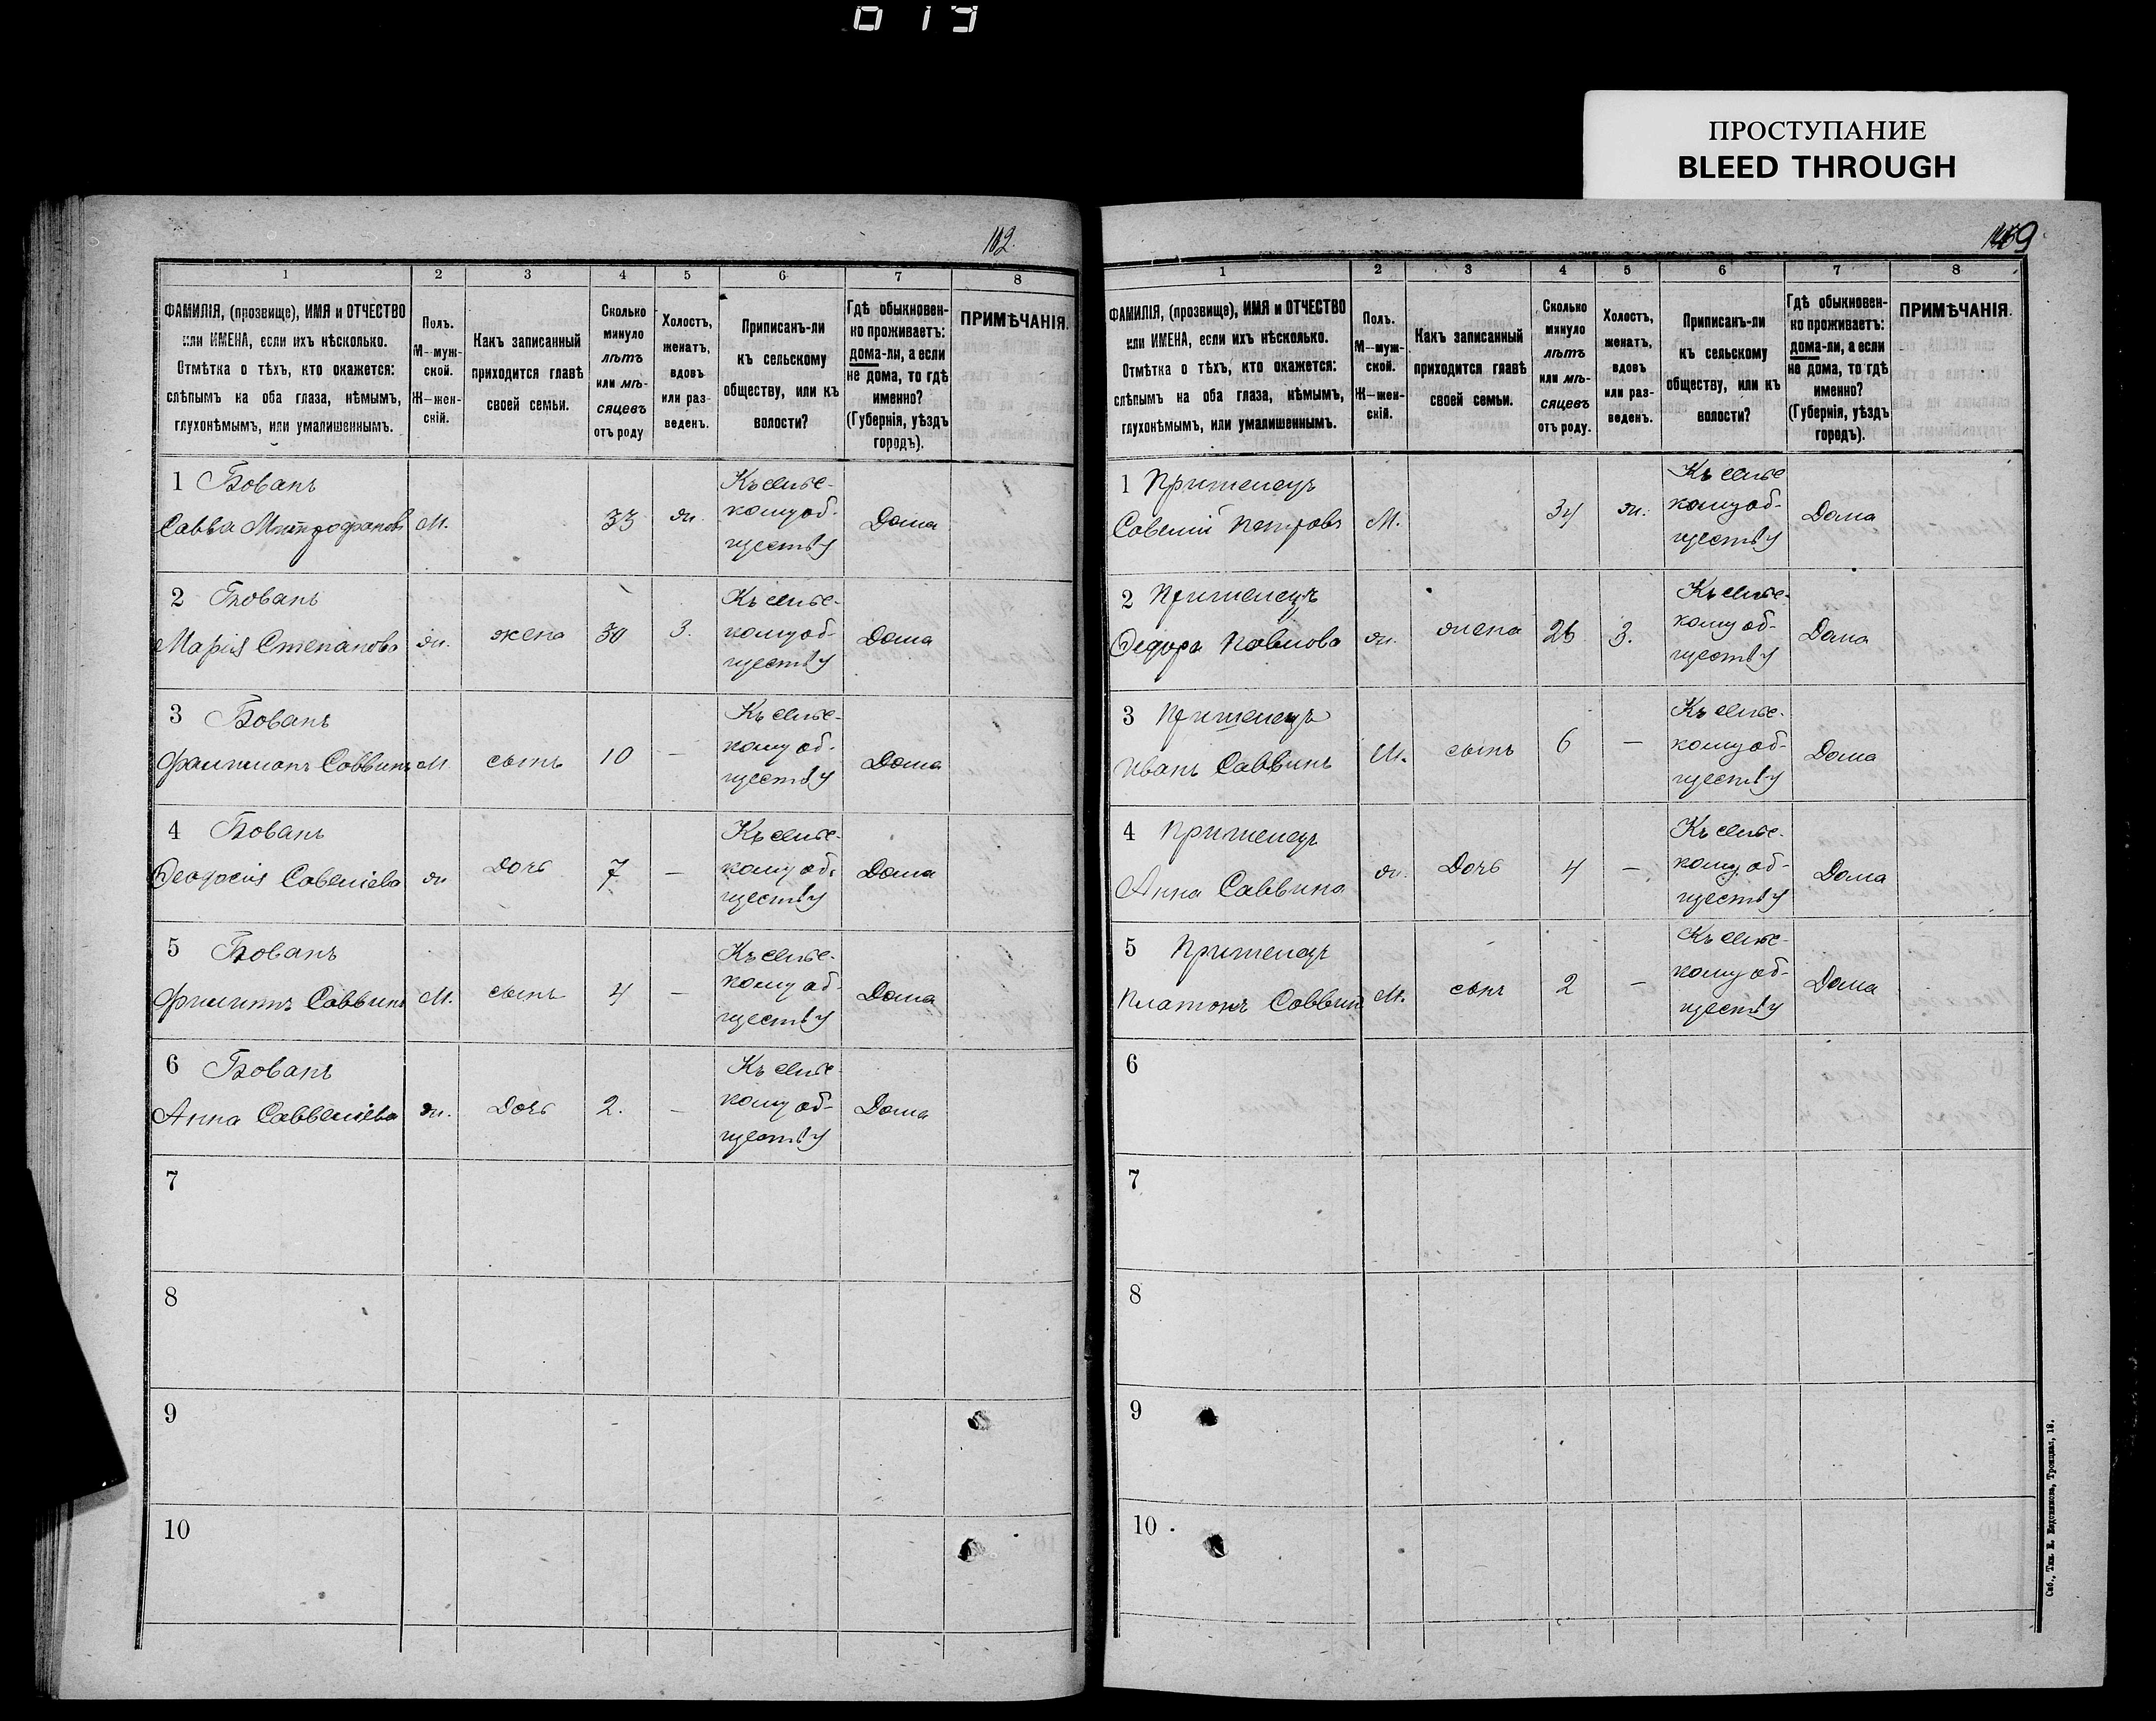 019
ПРОСТУПАНИЕ
BLEED THROUGH
112.
1 2 3 4 5 6 7 8
ФАМИЛІЯ, (прозвище), ИМЯ и ОТЧЕСТВО
или ИМЕНА, если ихъ нѣсколько.
Отмѣтка о тѣхъ, кто окажется:
слѣпымъ на оба глаза, нѣмымъ,
глухонѣмымъ, или умалишеннымъ.
Полъ.
М—муж-
ской.
Ж—жен-
скій.
Какъ записанный
приходится главѣ
своей семьи.
Сколько
минуло
лѣтъ
или мѣ-
сяцевъ
отъ роду
Холостъ,
женатъ,
вдовъ
или раз-
веденъ.
Приписанъ-ли
къ сельскому
обществу, или къ
волости?
Гдѣ обыкновен-
но проживаетъ:
дома-ли, а если
не дома, то гдѣ
именно?
(Губернія, уѣздъ
городъ).
ПРИМѢЧАНІЯ.
1 Бованъ
Савва Митрофановъ М. 33 ж. Къ сельс-
кому об-
ществу Дома
2 Бованъ
Марія Степанова ж. жена 30 З. Къ сельс-
кому об-
ществу Дома
3 Бованъ
Саввинъ М. сынъ 10 — Къ сельс-
кому об-
ществу Дома
4 Бованъ
Феодосія Савеліева ж дочь 7 — Къ сельс-
кому об-
ществу Дома
5 Бованъ
Филиппъ Саввинъ М. сынъ 4 — Къ сельс-
кому об-
ществу Дома
6 Бованъ
Анна Саввеліева ж. дочь 2. — Къ сельс-
кому об-
ществу Дома
7
8
9
10
1 2 3 4 5 6 7 8
ФАМИЛІЯ, (прозвище), ИМЯ и ОТЧЕСТВО
или ИМЕНА, если ихъ нѣсколько.
Отмѣтка о тѣхъ, кто окажется:
слѣпымъ на оба глаза, нѣмымъ,
глухонѣмымъ, или умалишеннымъ.
Полъ.
М—муж-
ской.
Ж—жен-
скій.
Какъ записанный
приходится главѣ
своей семьи.
Сколько
минуло
лѣтъ
или мѣ-
сяцевъ
отъ роду.
Холостъ,
женатъ,
вдовъ
или раз-
веденъ.
Приписанъ-ли
къ сельскому
обществу, или къ
волости?
Гдѣ обыкновен-
но проживаетъ:
дома-ли, а если
не дома, то гдѣ
именно?
(Губернія, уѣздъ
городъ).
ПРИМѢЧАНІЯ.
1 Пришенецъ
Савелій Петровъ М. 34 ж. Къ сельс
кому об-
ществу Дома
2 Пришенецъ
Федора Павлова ж. жена 26 З. Къ сельс-
кому об-
ществу Дома
3 Пришенецъ
Иванъ Саввинъ М. сынъ 6 — Къ сельс-
кому об-
ществу Дома
4 Пришенецъ
Анна Саввина ж. дочь 4 — Къ сельс-
кому об-
ществу Дома
5 Пришенецъ
Платонъ Саввинъ М. сынъ 2 — Къ сельс-
кому об-
ществу Дома
6
7
8
9
10
Спб., Тип. Е. Евдокимова, Троицкая, 18.